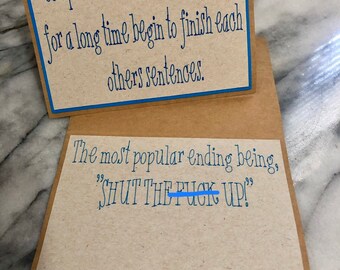 for a long time begin to finish each
others sentences.
The most popular ending being,
"SHUT THE FUCK UP!"